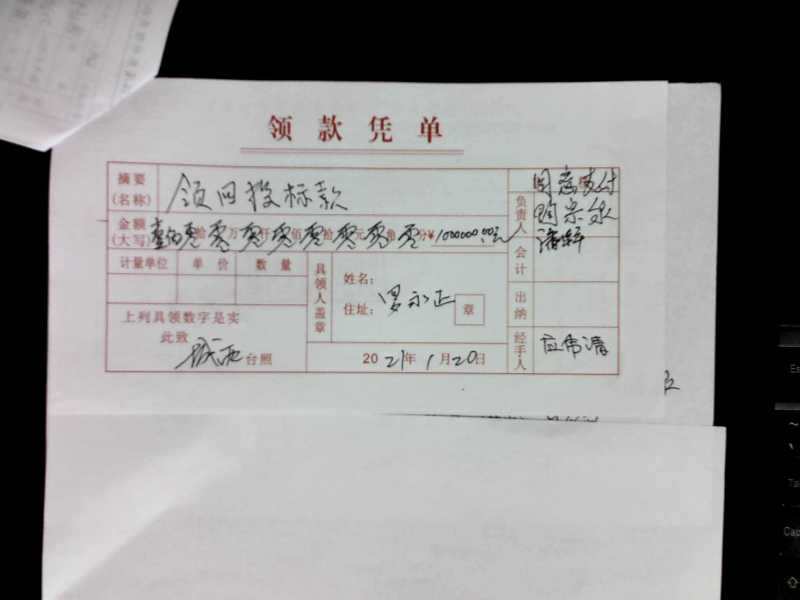 领款凭单
摘要
(名称)
领回投标款
金额
(大写)
壹佰零拾零万零仟零佰零拾零元零角零分¥1000000.00元
计量单位 单价 数量
上列具领数字是实
此致
城西台照
具领人盖章
姓名:
住址:
罗永正
章
2021年1月20日
负责人
同意支付
会计
出纳
经手人
应伟清